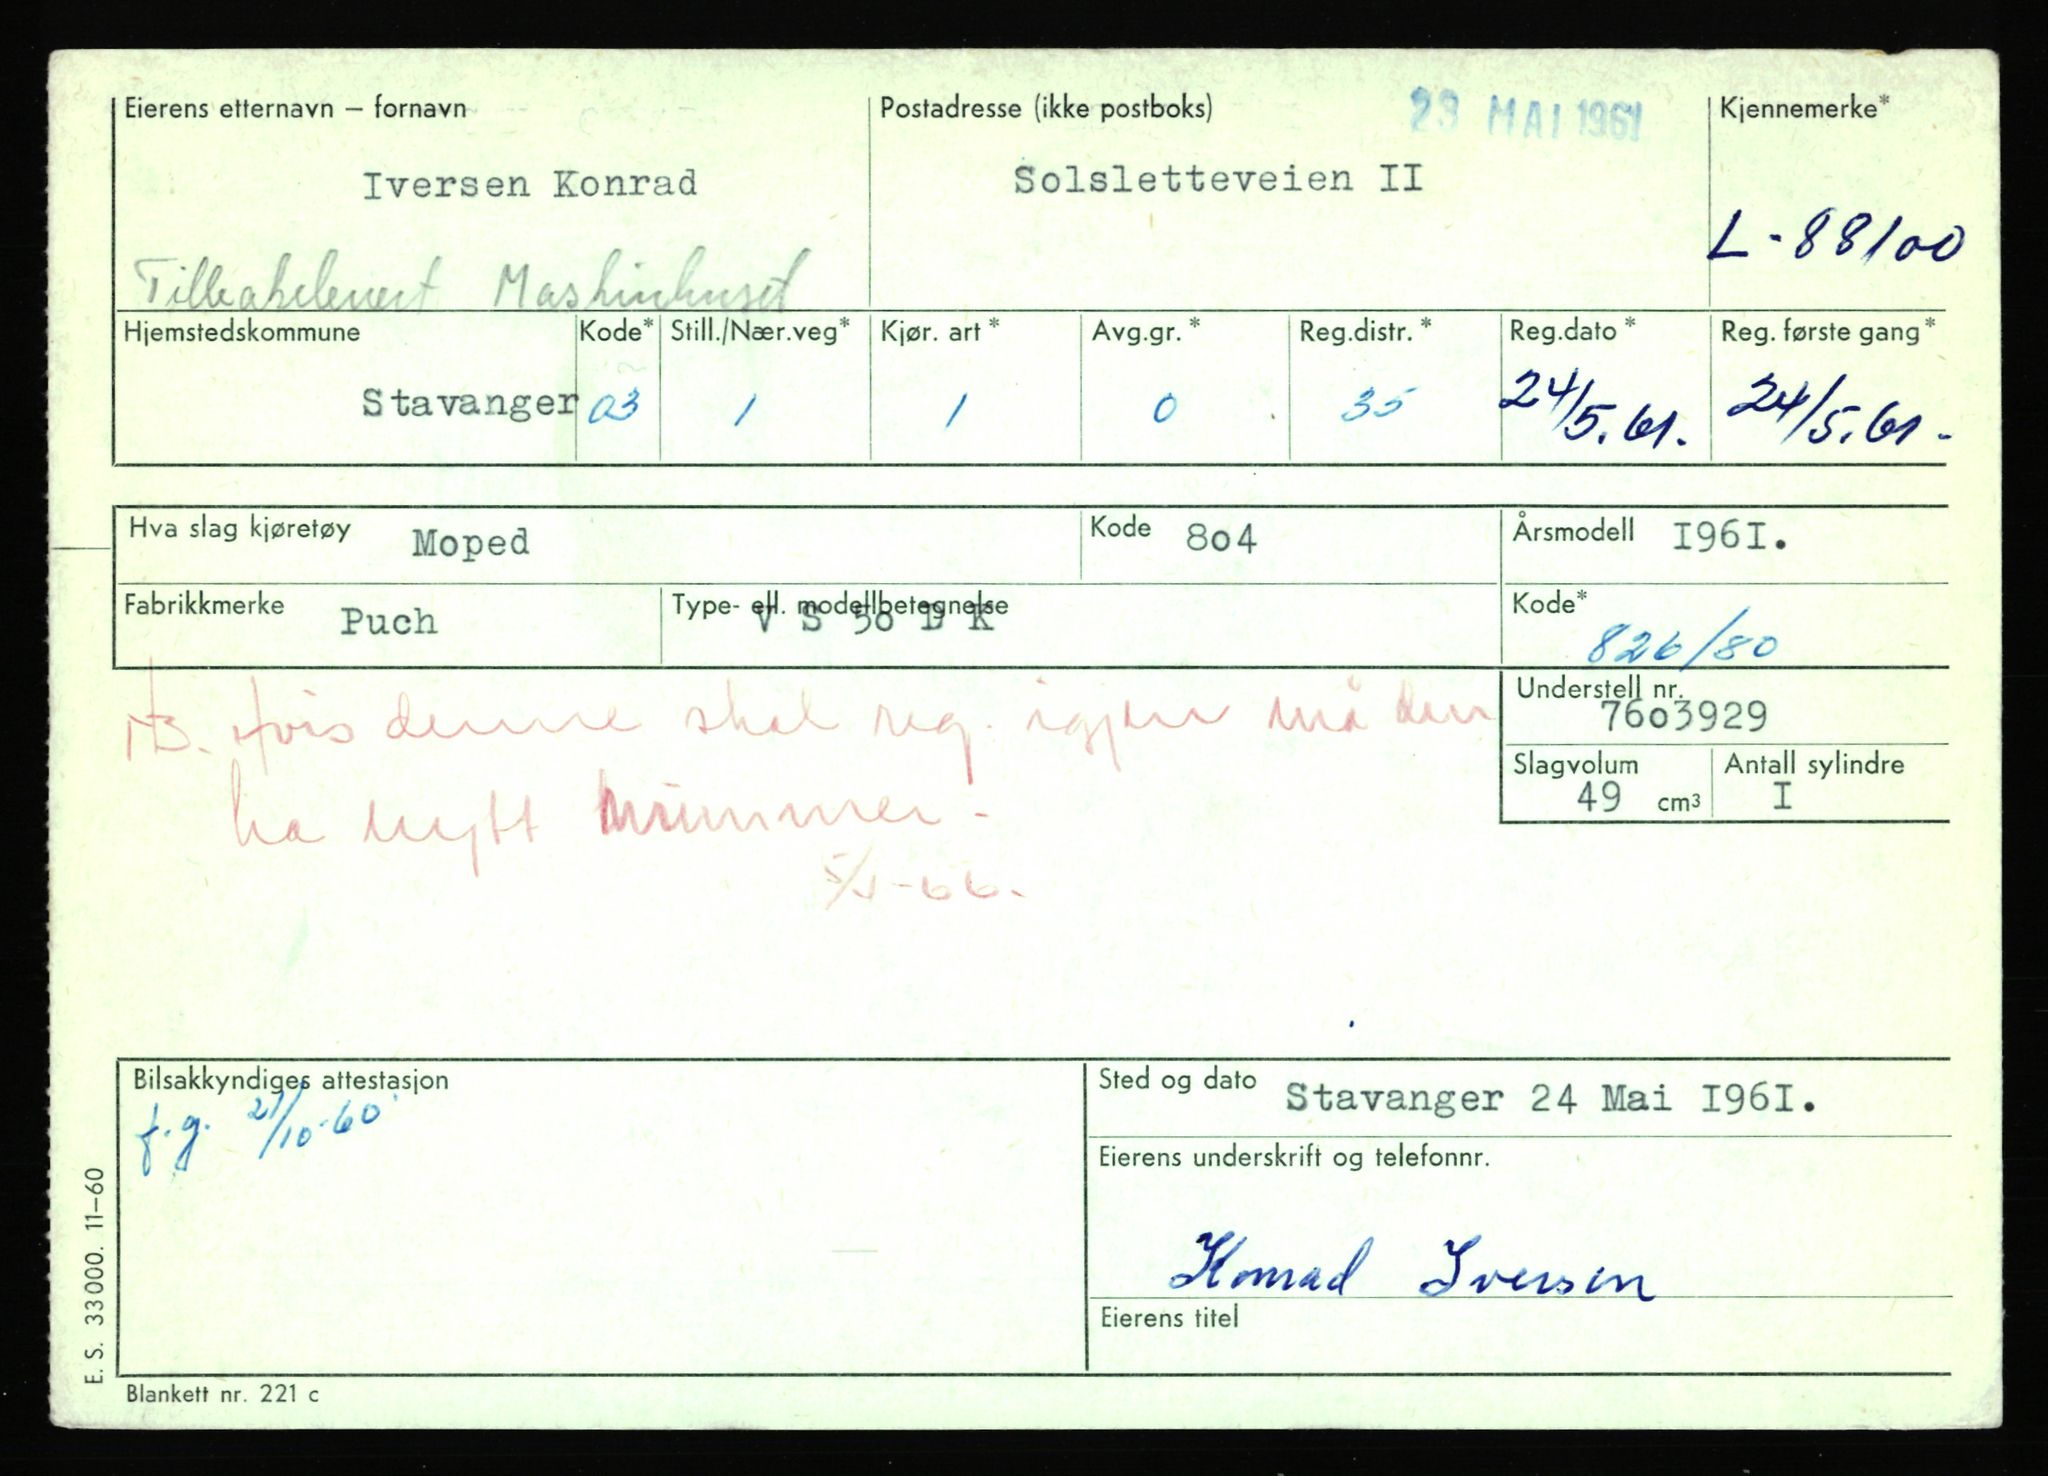 Eierens etternavn – fornavn
Postadresse (ikke postboks)
23 MAI 1961
Kjennemerke*
Iversen Konrad
Solsletteveien II
L-88100
Tilbakelevert Maskinhuset
Hjemstedskommune
Kode*
Still./Nær.veg*
Kjør. art *
Avg.gr. *
Reg.distr. *
Reg.dato *
Reg. første gang*
Stavanger
03
1
1
0
35
24/5.61.
24/5.61-
Hva slag kjøretøy Moped
Kode 8o4
Årsmodell I96I.
Fabrikkmerke Puch
Type- ell. modellbetegnelse
V S 5o D K
Kode*
826/80
NB. Hvis denne skal reg. igjen må den
ha nytt nummer -
Understell nr.
76o3929
Slagvolum
49 cm3
Antall sylindre
I
Bilsakkyndiges attestasjon
f.g. 21/10-60
Sted og dato Stavanger 24 Mai I96I.
Eierens underskrift og telefonnr.
Konrad Iversen
Eierens titel
E. S. 33000. 11–60
Blankett nr. 221 c